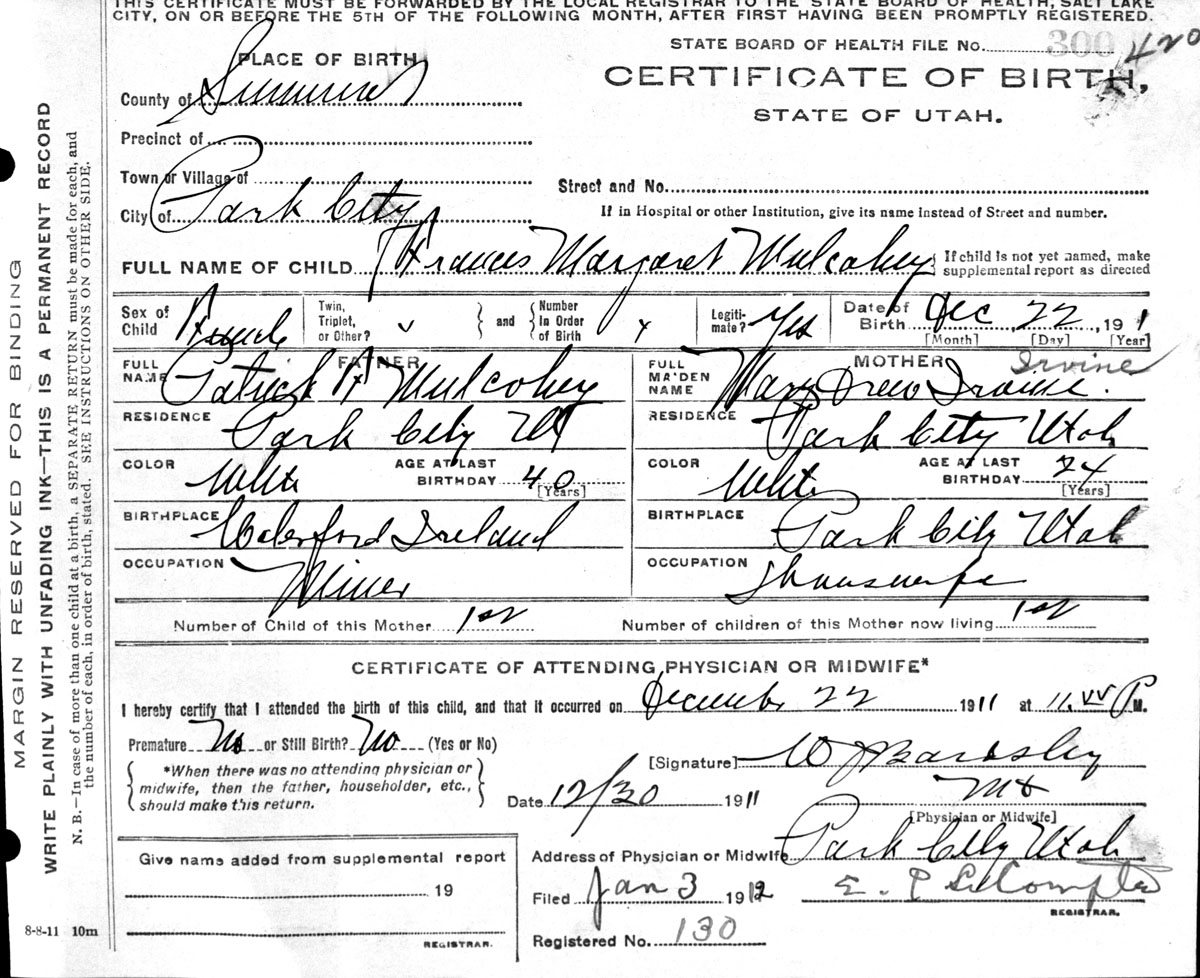 THIS CERTIFICATE MUST BE FORWARDED BY THE LOCAL REGISTRAR TO THE STATE BOARD OF HEALTH, SALT LAKE
CITY, ON OR BEFORE THE 5TH OF THE FOLLOWING MONTH, AFTER FIRST HAVING BEEN PROMPTLY REGISTERED.
STATE BOARD OF HEALTH FILE No. 300 420
PLACE OF BIRTH
CERTIFICATE OF BIRTH,
STATE OF UTAH.
County of Summit
Precinct of
Town or Village of
Street and No.
City of Park City
If in Hospital or other Institution, give its name instead of Street and number.
FULL NAME OF CHILD Frances Margaret Mulcahey { If child is not yet named, make
supplemental report as directed
Sex of Child Female Twin, Triplet, or Other? } and { Number In Order of Birth Legitimate? Yes Date of Birth Dec 22, 191 1
[Month] [Day] [Year]
FATHER MOTHER Irvine
FULL NAME Patrick H Mulcahey FULL MAIDEN NAME Mary Drew Irvine.
RESIDENCE Park City Ut RESIDENCE Park City Utah
COLOR White AGE AT LAST BIRTHDAY 40 [Years] COLOR White AGE AT LAST BIRTHDAY 24 [Years]
BIRTHPLACE Waterford Ireland BIRTHPLACE Park City Utah
OCCUPATION Miner OCCUPATION Housewife
Number of Child of this Mother 1st Number of children of this Mother now living 1st
CERTIFICATE OF ATTENDING PHYSICIAN OR MIDWIFE*
I hereby certify that I attended the birth of this child, and that it occurred on December 22 1911 at 11 P M.
Premature No or Still Birth? No (Yes or No)
[Signature] W J Bardsley
MD
[Physician or Midwife]
{ *When there was no attending physician or
midwife, then the father, householder, etc.,
should make this return. }
Date 12/30 1911
Give name added from supplemental report
19
REGISTRAR.
Address of Physician or Midwife Park City Utah
Filed Jan 3 1912 E. P. LeCompte
REGISTRAR.
Registered No. 130
8-8-11 10m
MARGIN RESERVED FOR BINDING
WRITE PLAINLY WITH UNFADING INK—THIS IS A PERMANENT RECORD
N. B.—In case of more than one child at a birth, a SEPARATE RETURN must be made for each, and
the number of each, in order of birth, stated. SEE INSTRUCTIONS ON OTHER SIDE.